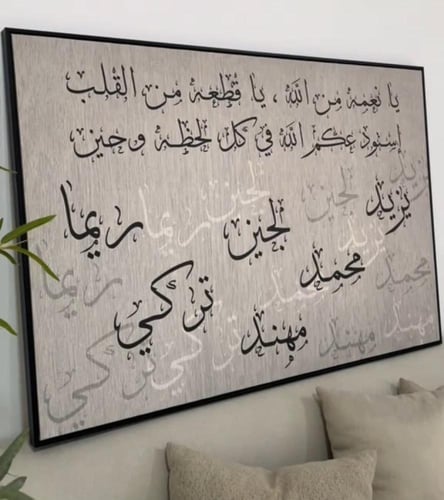 يا نعمه من الله ، يا قطعه من القلب
إستودعكم الله في كل لحظه وحين
يزيد
لجين
ريما
محمد
تركي
مهند
يزيد
لجين
ريما
يزيد
لجين
ريما
محمد
محمد
مهند
مهند
تركي
تركي